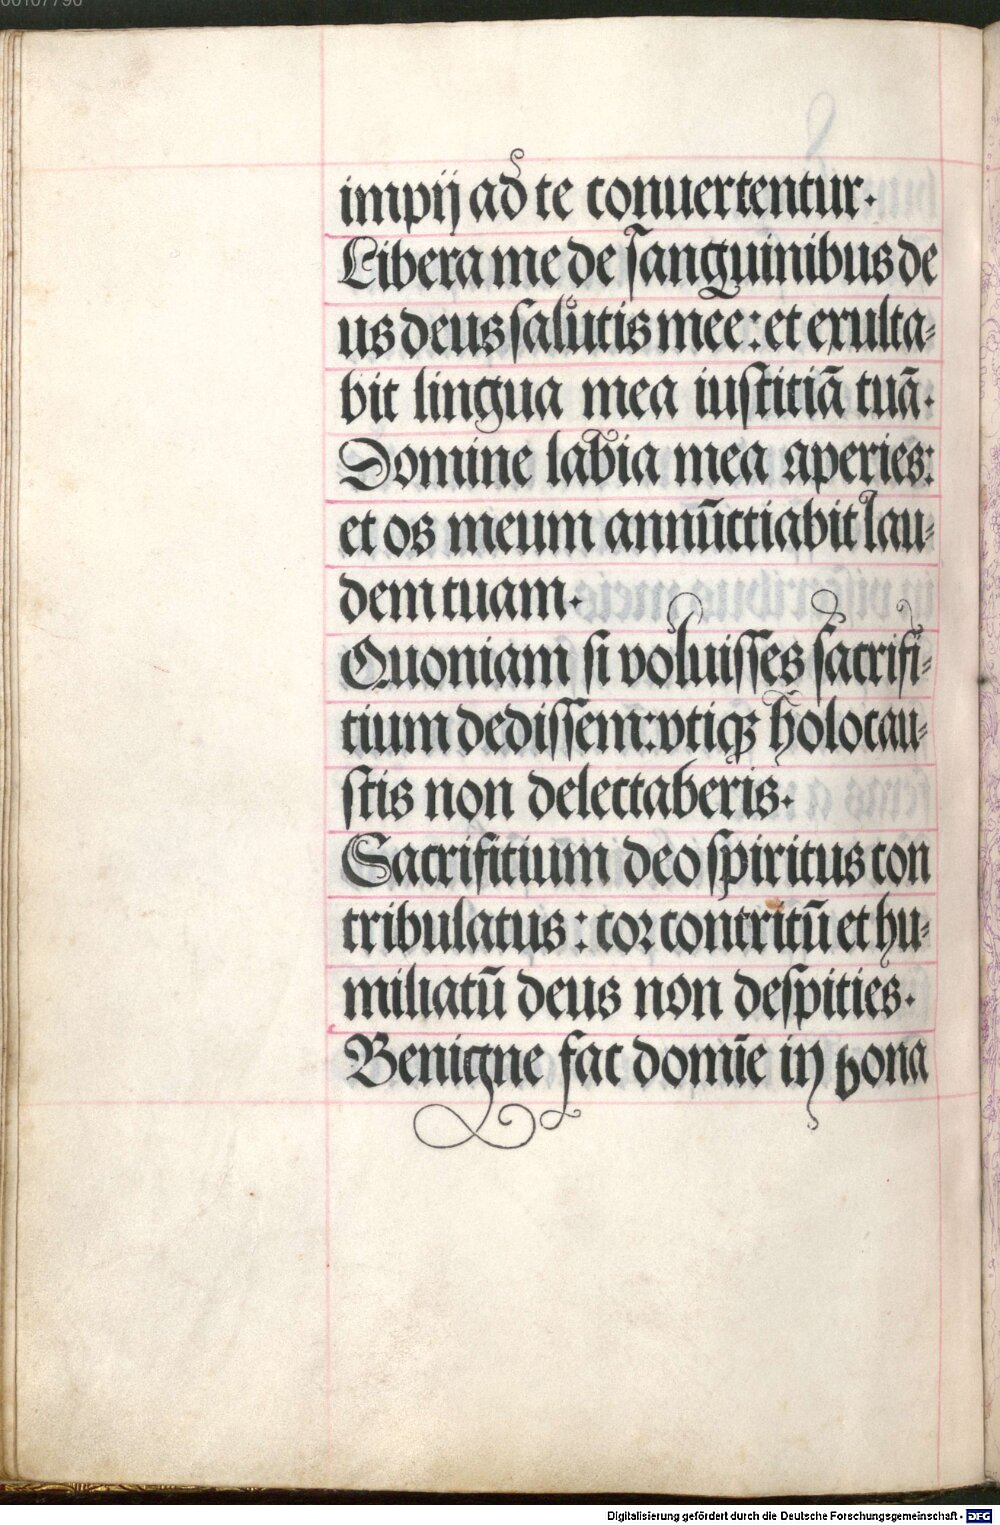 00107796
impij ad te conuertentur.
Libera me de sanguinibus de
us deus salutis mee: et exulta-
bit lingua mea iustitiā tuā.
Domine labia mea aperies:
et os meum annūctiabit lau-
dem tuam.
Quoniam si voluisses sacrifi-
cium dedissem: vtiqꝫ holocau-
stis non delectaberis.
Sacrificium deo spiritus con
tribulatus: cor contritū et hu-
miliatū deus non despicies.
Benigne fac domīe in bona
Digitalisierung gefördert durch die Deutsche Forschungsgemeinschaft - DFG